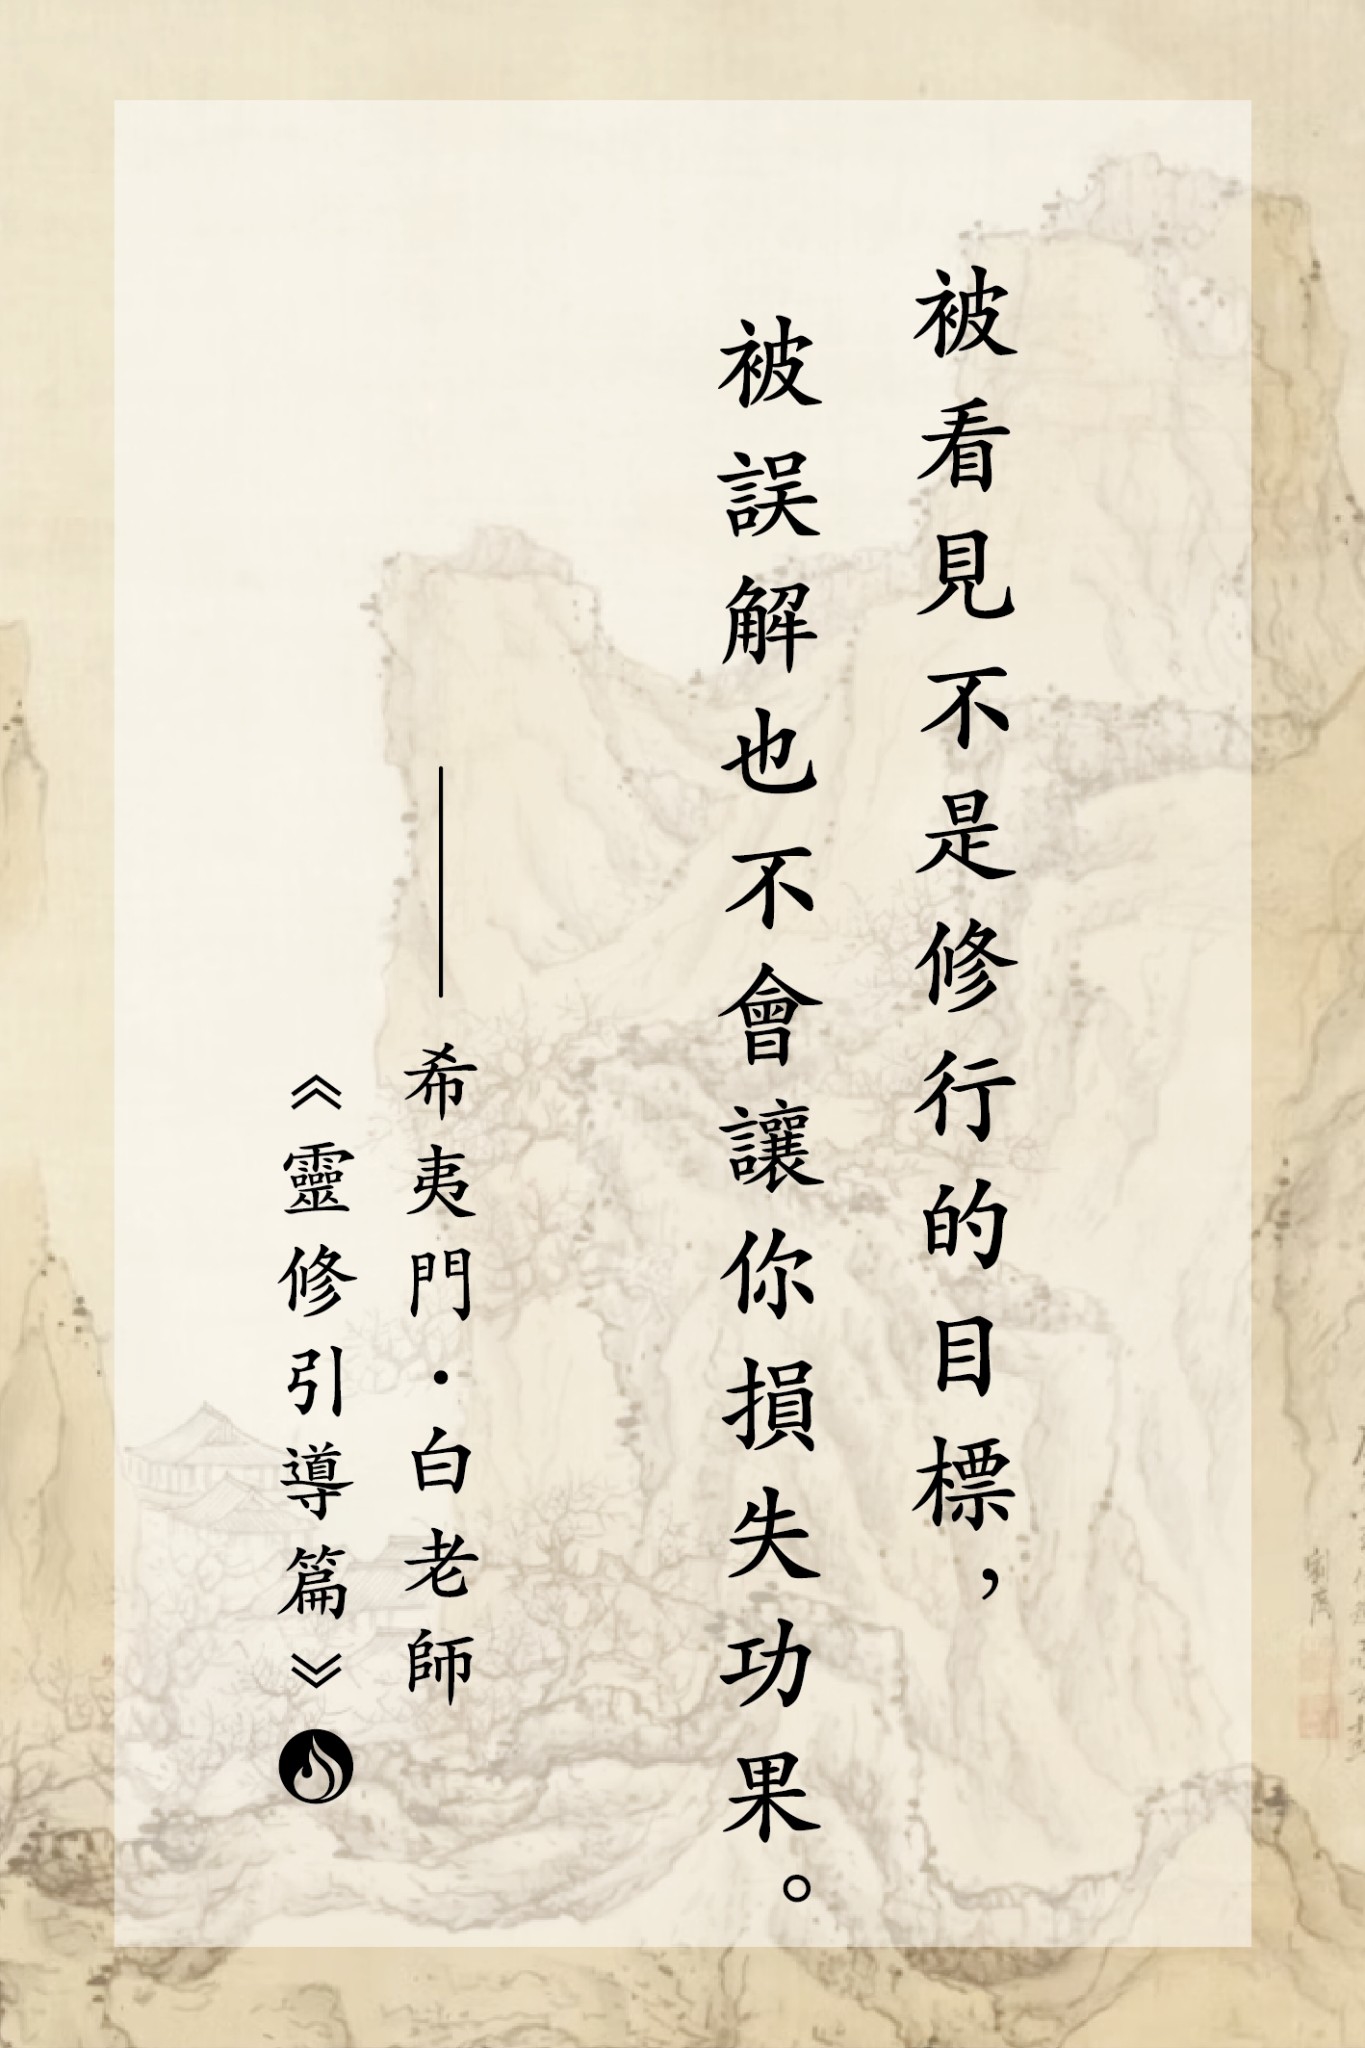 被看見不是修行的目標，
被誤解也不會讓你損失功果。
——希夷門·白老師
《靈修引導篇》